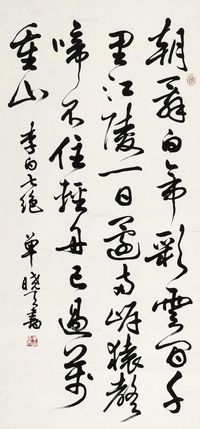 朝辭白帝彩雲間千
里江陵一日還兩岸猿聲
啼不住輕舟已過萬
重山
李白七絕 單曉天書